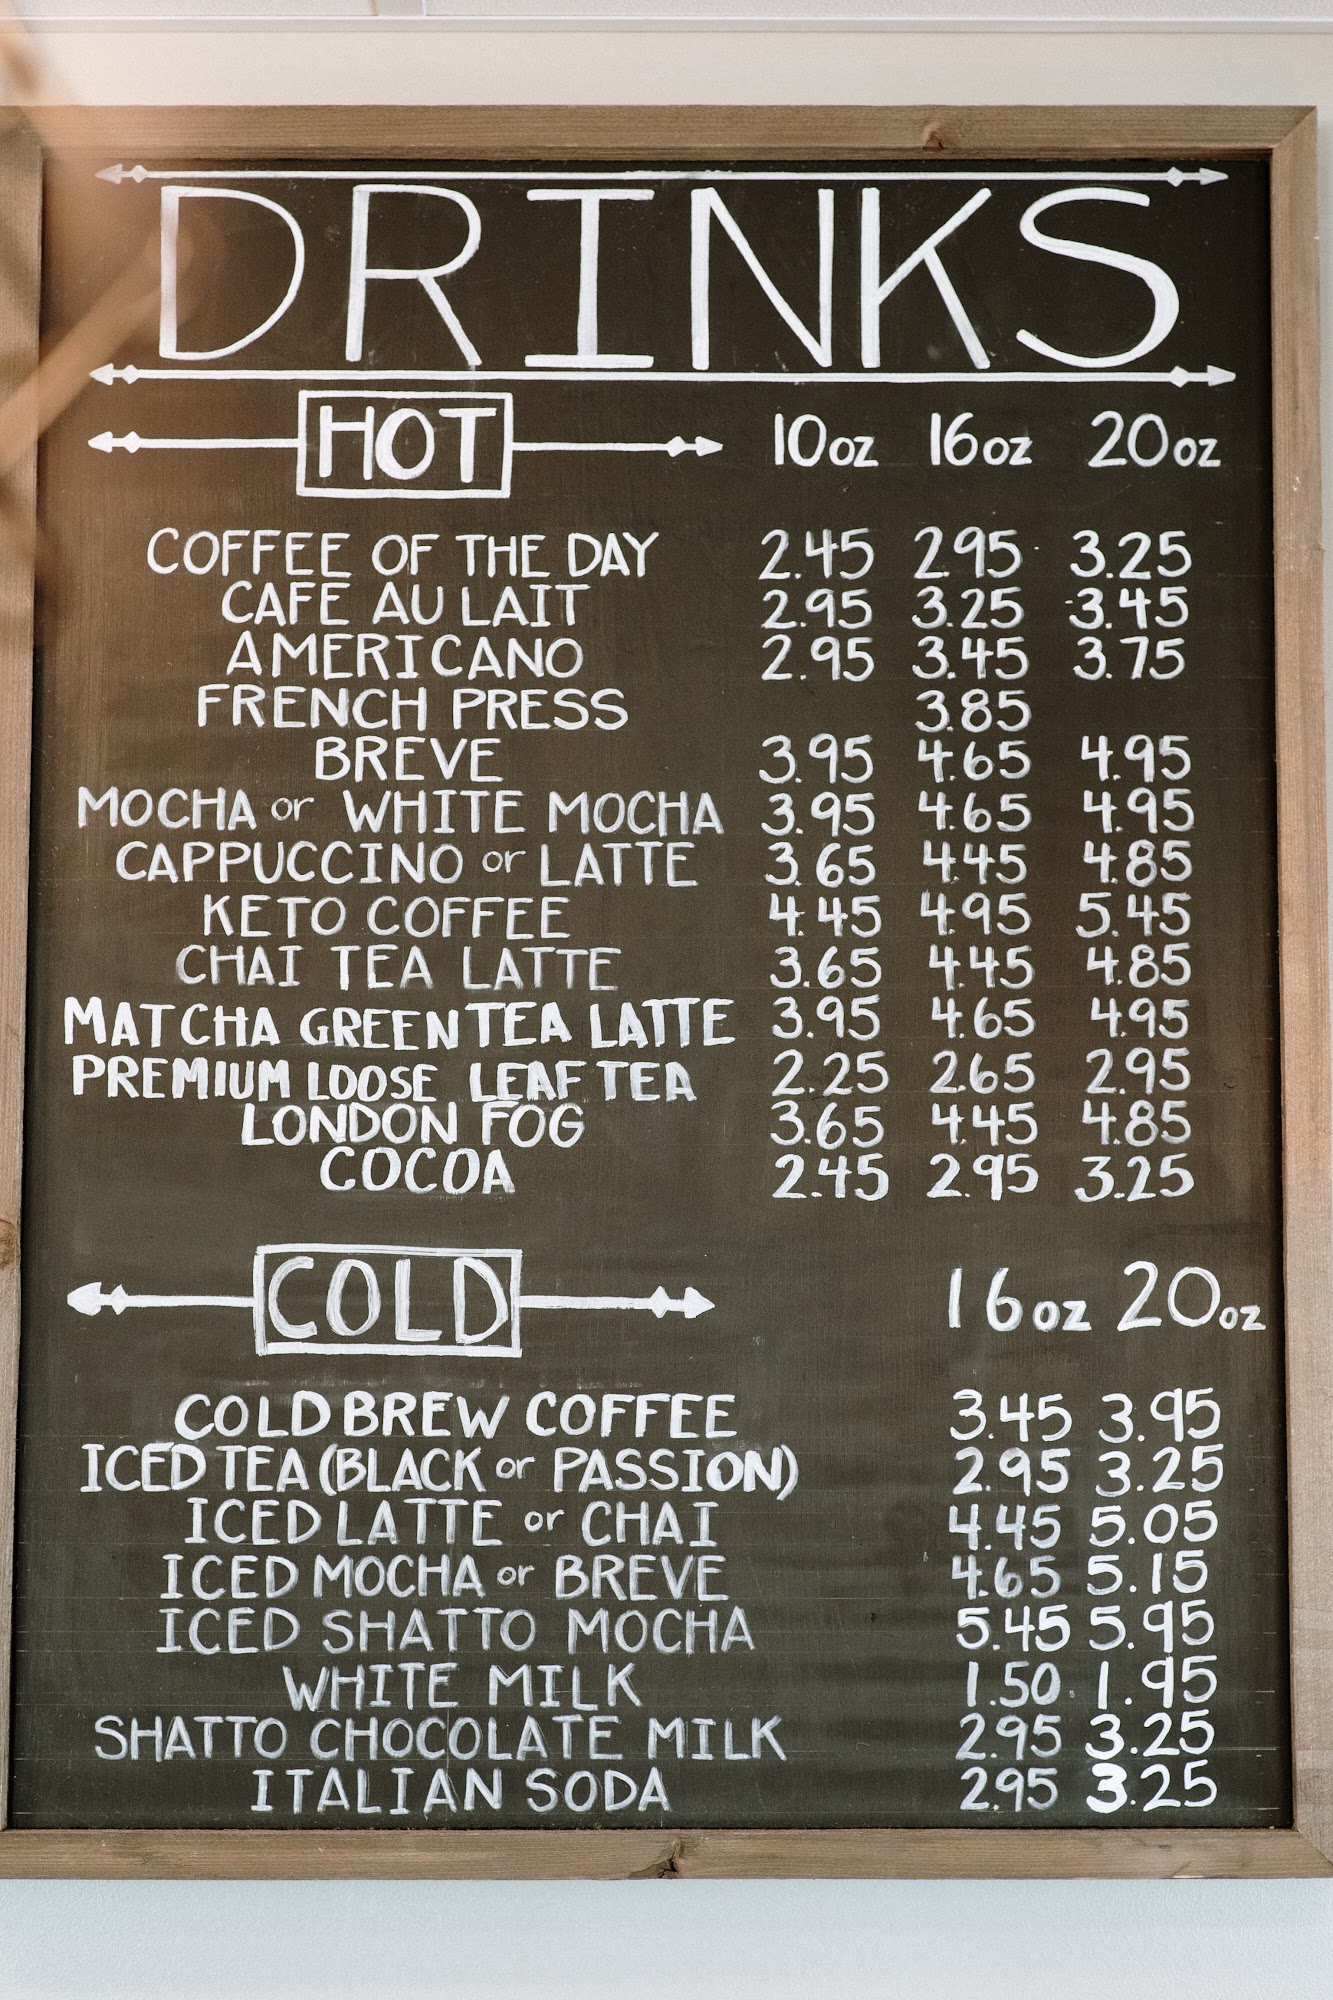 DRINKS
HOT 10oz 16oz 20oz
COFFEE OF THE DAY 2.45 2.95 3.25
CAFE AU LAIT 2.95 3.25 3.45
AMERICANO 2.95 3.45 3.75
FRENCH PRESS 3.85
BREVE 3.95 4.65 4.95
MOCHA or WHITE MOCHA 3.95 4.65 4.95
CAPPUCCINO or LATTE 3.65 4.45 4.85
KETO COFFEE 4.45 4.95 5.45
CHAI TEA LATTE 3.65 4.45 4.85
MATCHA GREEN TEA LATTE 3.95 4.65 4.95
PREMIUM LOOSE LEAF TEA 2.25 2.65 2.95
LONDON FOG 3.65 4.45 4.85
COCOA 2.45 2.95 3.25
COLD 16oz 20oz
COLD BREW COFFEE 3.45 3.95
ICED TEA (BLACK or PASSION) 2.95 3.25
ICED LATTE or CHAI 4.45 5.05
ICED MOCHA or BREVE 4.65 5.15
ICED SHATTO MOCHA 5.45 5.95
WHITE MILK 1.50 1.95
SHATTO CHOCOLATE MILK 2.95 3.25
ITALIAN SODA 2.95 3.25